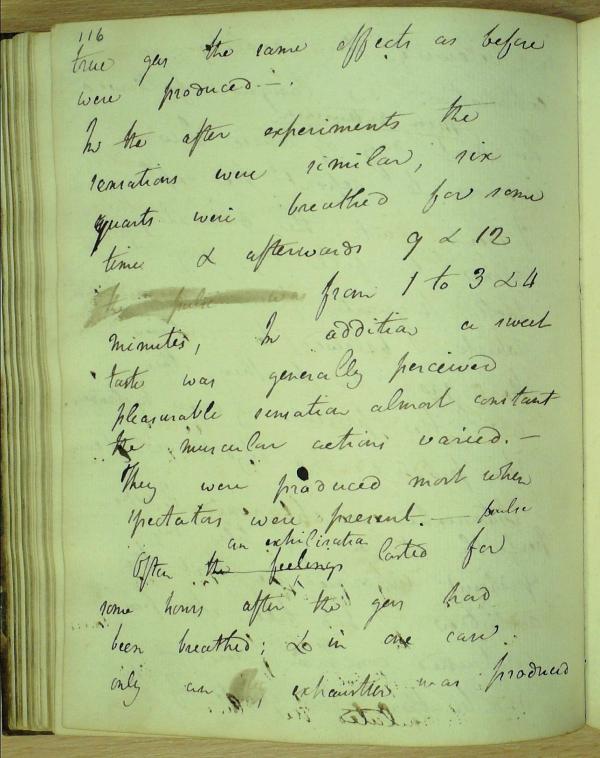 116
true gas the same effects as before
were produced. —
In the after experiments the
sensations were similar; six
quarts were breathed for some
time & afterwards 9 & 12
the pulse was from 1 to 3 & 4
minutes, In addition a sweet
taste was generally perceived
pleasurable sensation almost constant
the muscular actions varied. —
They were produced most when
spectators were present. — pulse
an exhiliration
Often the feelings lasted for
some hours after the gas had
been breathed; & in one case
only an exhaustion was produced